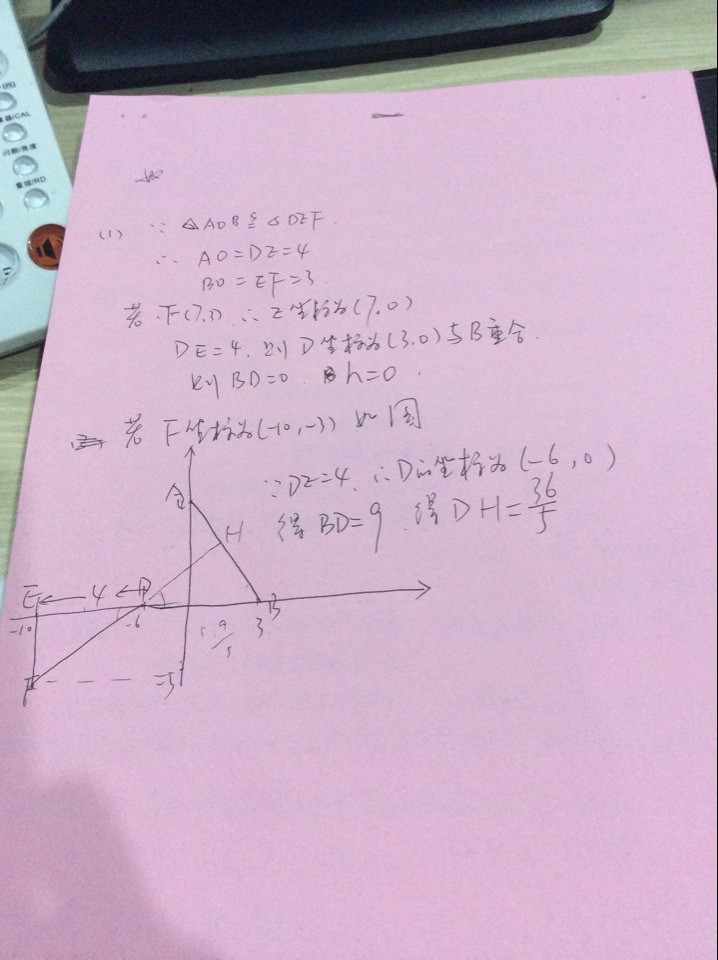 (四)
器/CAL
闪断/亮度
重拨/RD
如
(1) ∵ △AOB≌△DEF.
∴ AO=DE=4
BO=EF=3.
若 F(7,3) ∴ E坐标为(7,0)
DE=4, 则 D坐标为(3,0)与B重合.
则 BD=0 h=0.
若 F坐标为(-10,-3) 如图
∵DE=4, ∴D的坐标为(-6,0)
得 BD=9 得 DH=36/5
A
H
E 4 D B
-10 -6 9/5 3
F